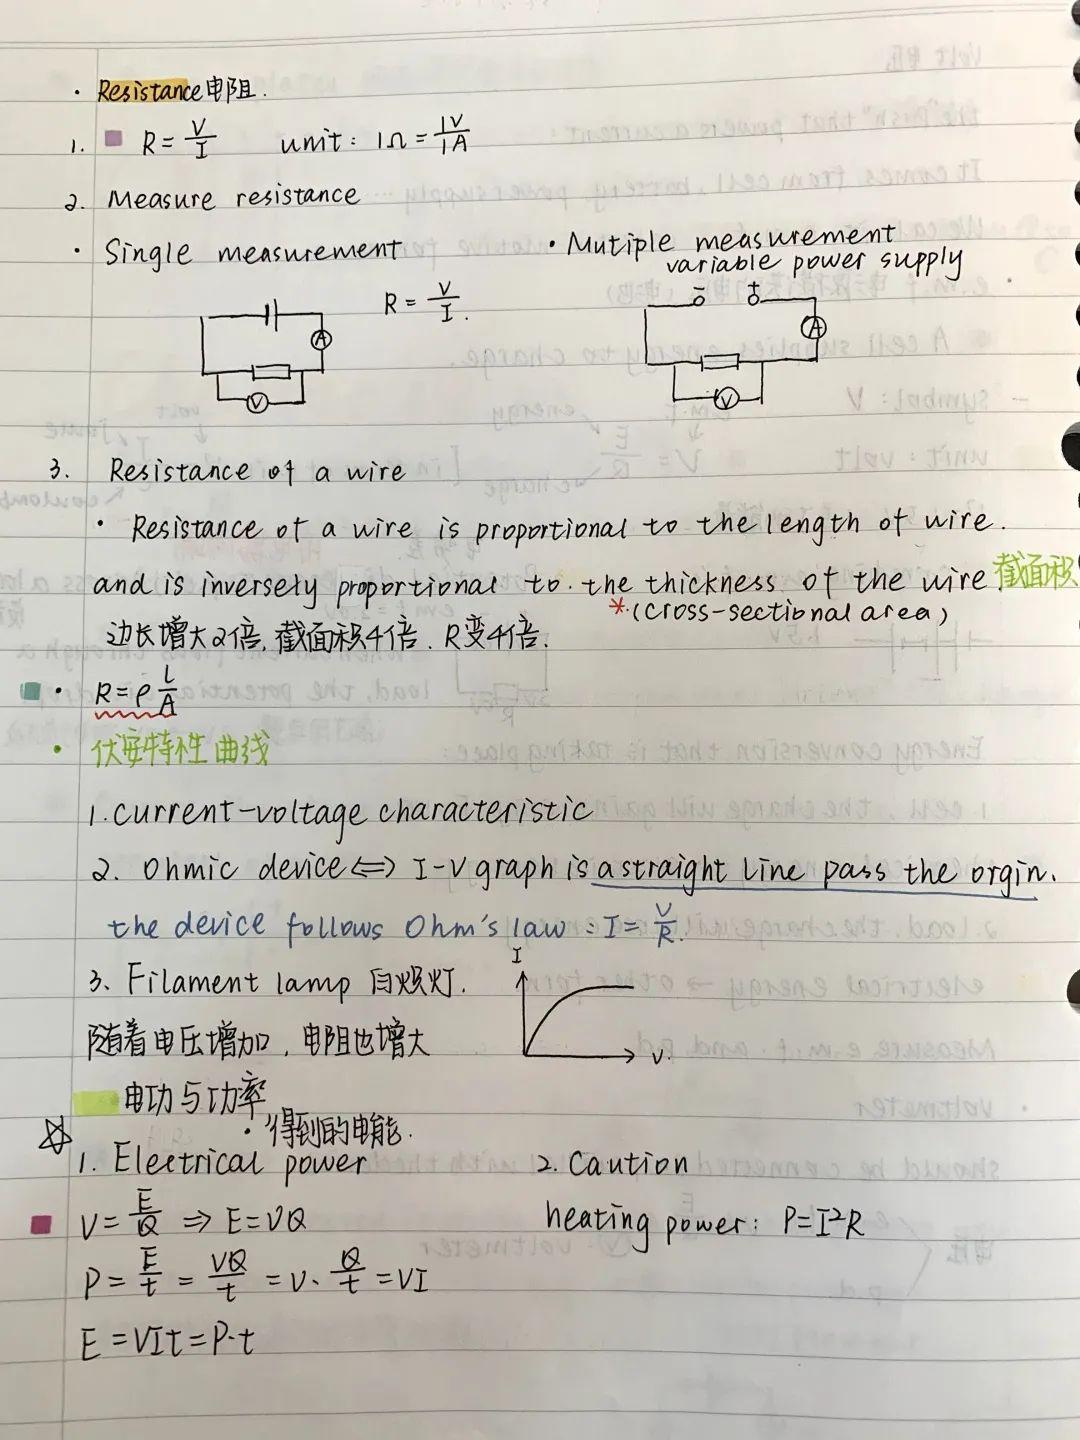 · Resistance电阻.
1. R = V/I unit: 1Ω = 1V/1A
2. Measure resistance
· Single measurement
· Mutiple measurement
variable power supply
R = V/I.
- +
A
A
V
V
3. Resistance of a wire
· Resistance of a wire is proportional to the length of wire.
and is inversely proportional to the thickness of the wire. 截面积
*(cross-sectional area)
边长增大2倍,截面积4倍. R变4倍.
· R = ρ L/A
· 伏安特性曲线
1. Current-voltage characteristic
2. Ohmic device ⟺ I-V graph is a straight line pass the orgin.
the device follows Ohm's law : I = V/R.
3. Filament lamp 白炽灯.
I
V.
随着电压增加, 电阻也增大
电功与功率
· 得到的电能.
1. Electrical power
2. Caution
V = E/Q ⇒ E = VQ
heating power: P = I²R
P = E/t = VQ/t = V · Q/t = VI
E = VIt = P·t